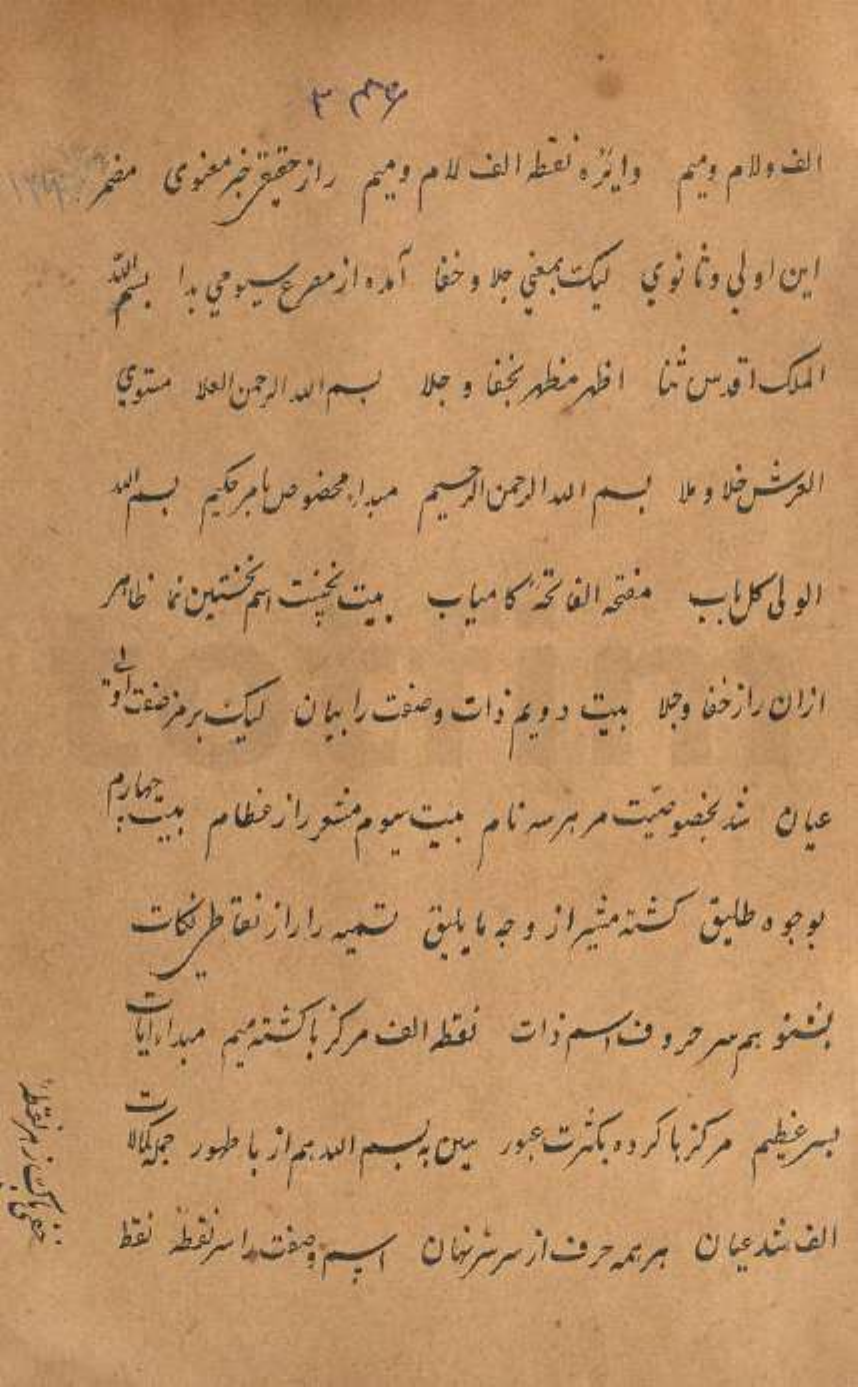 ۲۴۶
الف و لام و میم دایره نقطه الف لام و میم راز حقیقی خبر معنوی مضمر
این اولی و ثانوی لیک بمعنی جلا و خفا آمده از مصرع سیومی بدا بسم الله
الملک اقدس ثنا اظهر مظهر بخفا و جلا بسم الله الرحمن العلا مستوی
العرش خلا و ملا بسم الله الرحمن الرحیم مبداء مخصوص بامر حکیم بسم الله
الولی کل باب مفتح الفاتحة کامیاب بیت نخست اسم نخستین نما ظاهر
ازان راز خفا و جلا بیت دویم ذات و صفت را بیان لیک بر مز صفت
عیان شد بخصوصیت مر هر سه نام بیت سیوم مشعر راز عظام بیت چهارم
بوجوه طلیق کشته مشیر از وجه ما یلیق تسمیه را راز نقاط نکات
بشنو بم سر حروف اسم ذات نقطه الف مرکز با کشته میم مبداء آیات
بسر عظیم مرکز با کرده بکثرت عبور بین به بسم الله هم از با ظهور جمله کمالات
الف شد عیان هر همه حرف از سر سر نهان اسم و صفت را سر نقطه نقط